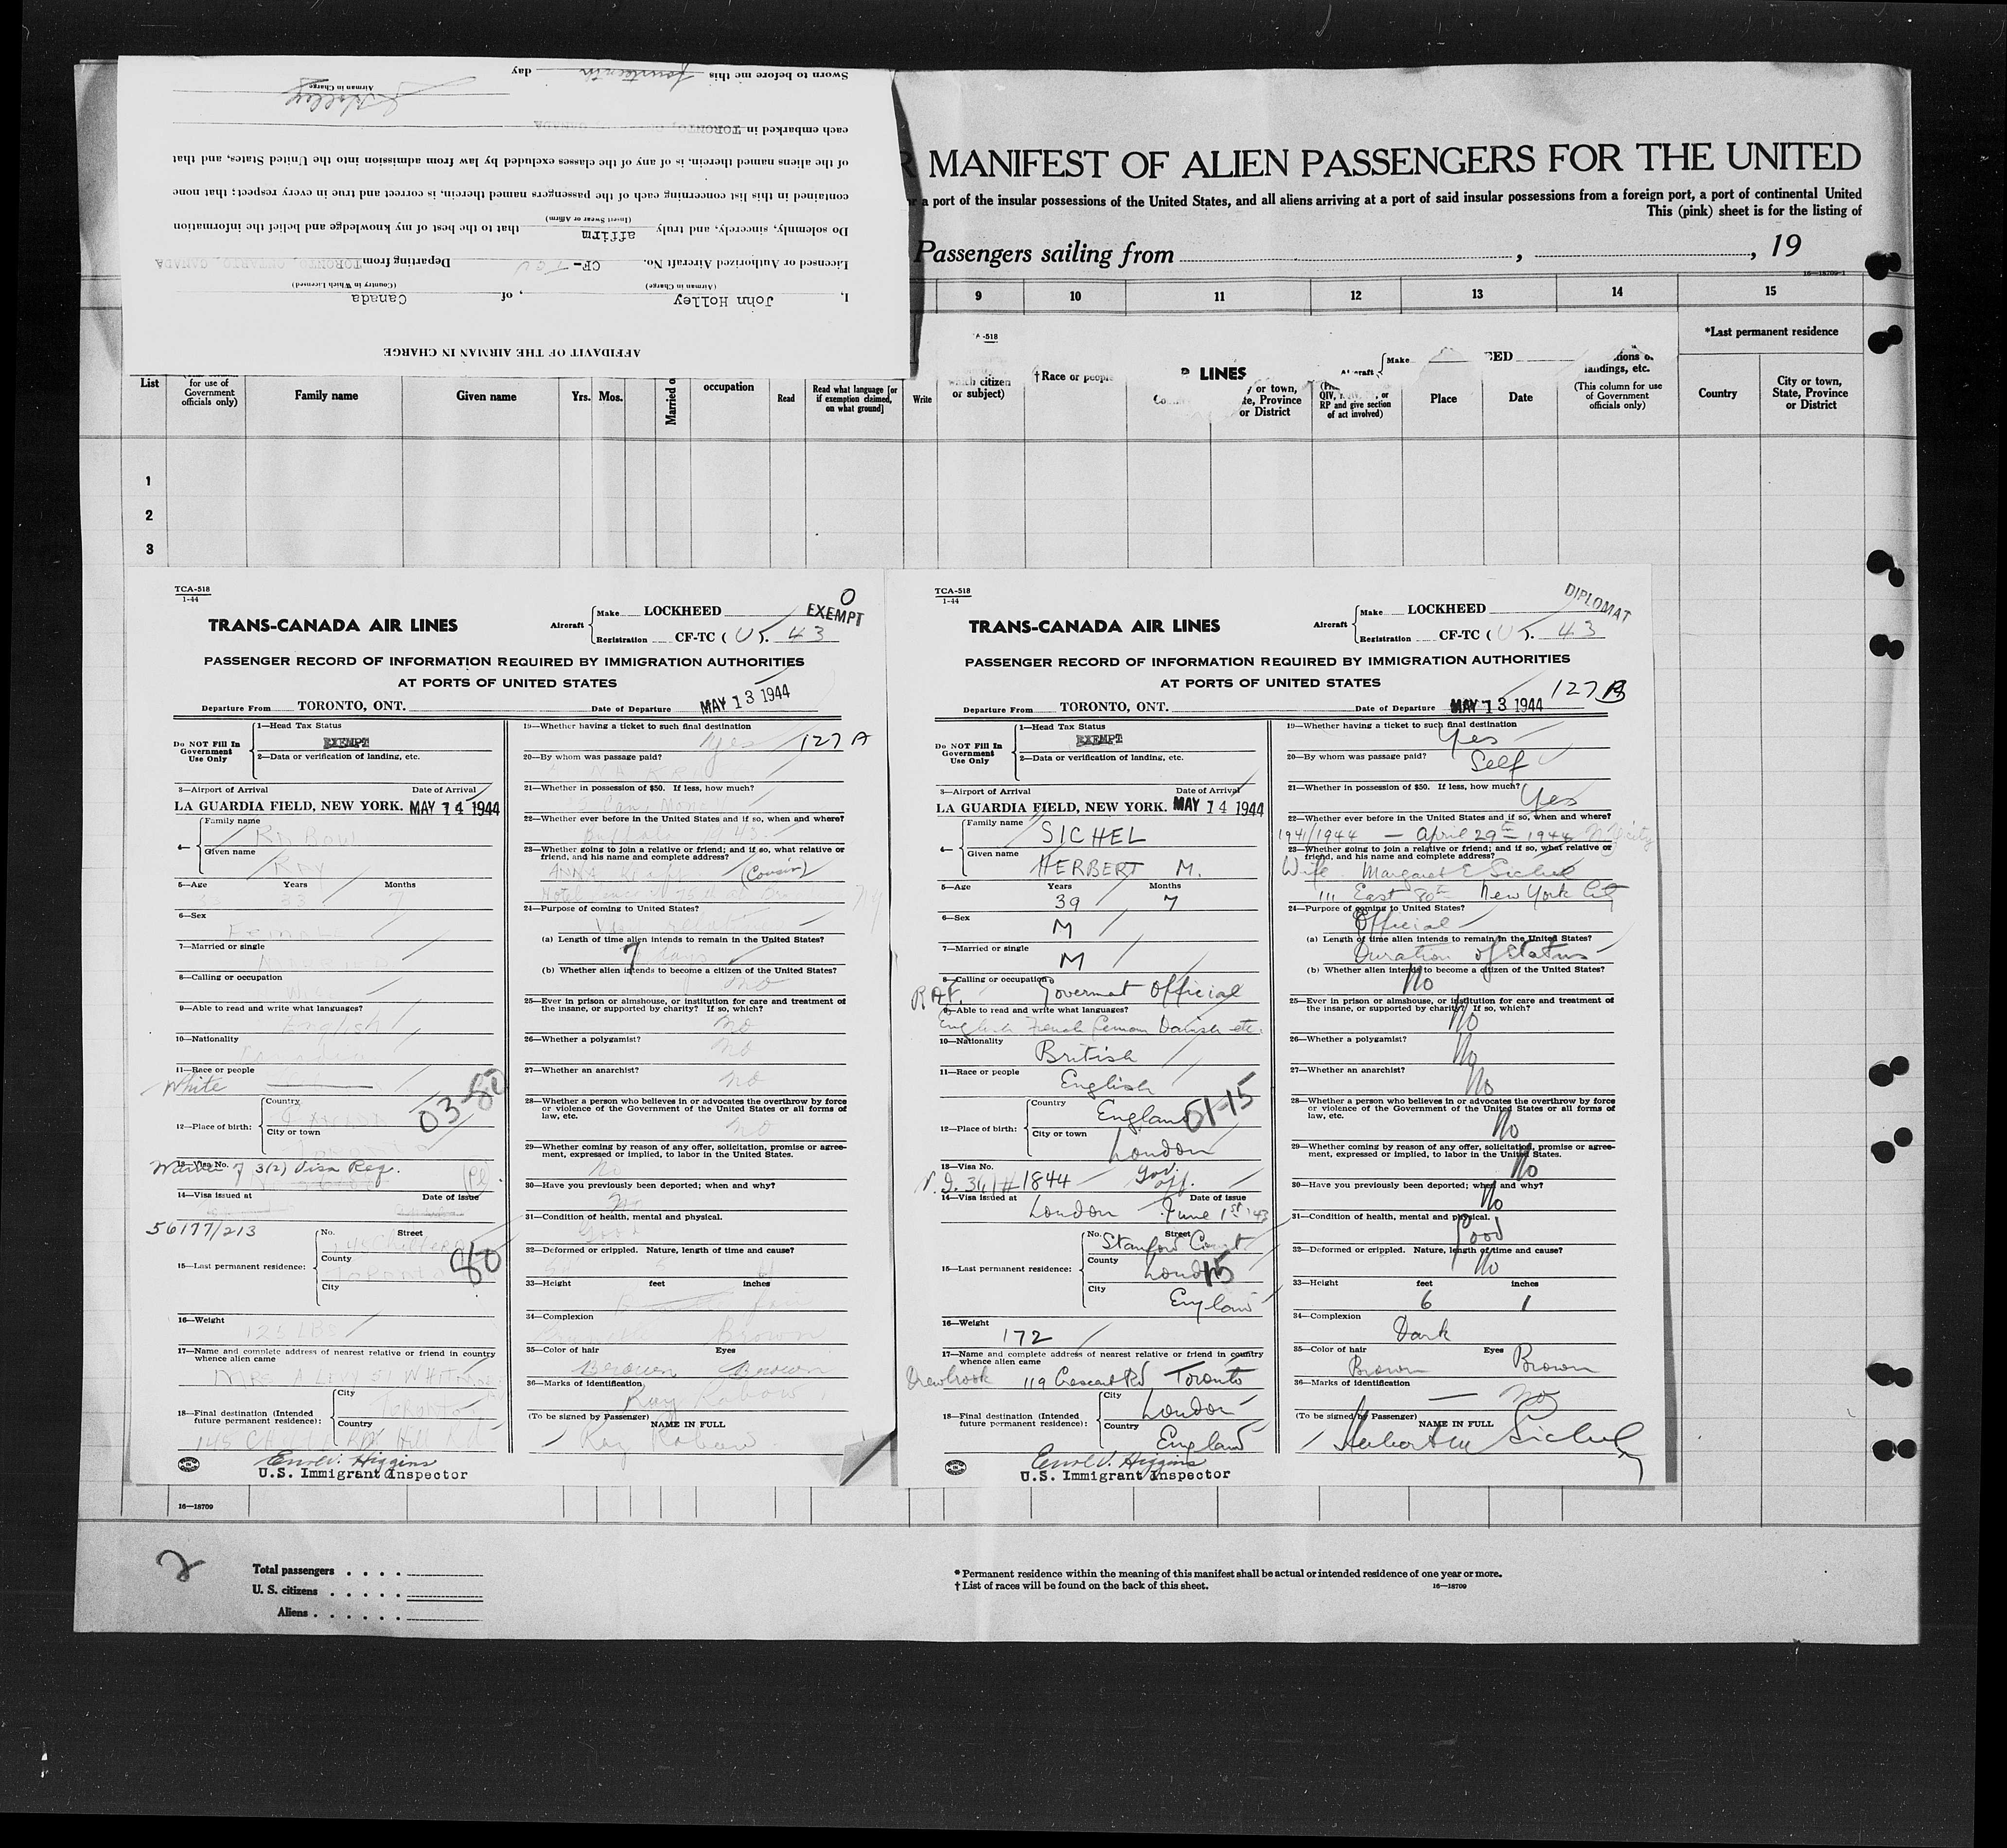 Sworn to before me this fourteenth day
Airman in Charge
each embarked in TORONTO, CANADA
of the aliens named therein, is of any of the classes excluded by law from admission into the United States, and that
contained in this list concerning each of the passengers named therein, is correct and true in every respect; that none
(Insert Swear or Affirm)
Do solemnly, sincerely, and truly affirm that to the best of my knowledge and belief the information
Licensed or Authorized Aircraft No. CF-TCU Departing from TORONTO, ONTARIO, CANADA
(Airman in Charge) (Country in Which Licensed)
I, John Holley, of Canada
AFFIDAVIT OF THE AIRMAN IN CHARGE
MANIFEST OF ALIEN PASSENGERS FOR THE UNITED
a port of the insular possessions of the United States, and all aliens arriving at a port of said insular possessions from a foreign port, a port of continental United
This (pink) sheet is for the listing of
Passengers sailing from , , 19
16—18709-1
9 10 11 12 13 14 15
-518
*Last permanent residence
List
for use of Government officials only)
Family name
Given name
Yrs. Mos.
Married o
occupation
Read
Read what language [or if exemption claimed, on what ground]
Write
which citizen or subject)
†Race or people
LINES
or town, te, Province or District
Make
RP and give section of act involved)
Place
Date
landings, etc.
(This column for use of Government officials only)
Country
City or town, State, Province or District
1
2
3
TCA-518
1-44
TRANS-CANADA AIR LINES
Aircraft Make LOCKHEED
Registration CF-TC (U). 43
0
EXEMPT
PASSENGER RECORD OF INFORMATION REQUIRED BY IMMIGRATION AUTHORITIES
AT PORTS OF UNITED STATES
Departure From TORONTO, ONT. Date of Departure MAY 13 1944
Do NOT Fill In Government Use Only
1—Head Tax Status
EXEMPT
2—Data or verification of landing, etc.
3—Airport of Arrival Date of Arrival
LA GUARDIA FIELD, NEW YORK. MAY 14 1944
4— Family name
Given name
RAY
5—Age Years Months
33 7
6—Sex
FEMALE
7—Married or single
8—Calling or occupation
9—Able to read and write what languages?
English
10—Nationality
11—Race or people
White
12—Place of birth: Country
City or town
03-80
13—Visa No.
Waiver of 3(2) Visa Req.
14—Visa issued at Date of issue
56177/213
15—Last permanent residence: No. Street
County
TORONTO
City
80
16—Weight
125 LBS
17—Name and complete address of nearest relative or friend in country whence alien came
MRS A LEVY 51
18—Final destination (Intended future permanent residence): City
TORONTO
Country
Errol V. Higgins
U.S. Immigrant Inspector
19—Whether having a ticket to such final destination
Yes 127 A
20—By whom was passage paid?
21—Whether in possession of $50. If less, how much?
Can. Money
22—Whether ever before in the United States and if so, when and where?
Buffalo
23—Whether going to join a relative or friend; and if so, what relative or friend, and his name and complete address?
ANNA (Cousin)
Hotel
24—Purpose of coming to United States?
(a) Length of time alien intends to remain in the United States?
7 days
(b) Whether alien intends to become a citizen of the United States?
no
25—Ever in prison or almshouse, or institution for care and treatment of the insane, or supported by charity? If so, which?
no
26—Whether a polygamist?
no
27—Whether an anarchist?
no
28—Whether a person who believes in or advocates the overthrow by force or violence of the Government of the United States or all forms of law, etc.
no
29—Whether coming by reason of any offer, solicitation, promise or agreement, expressed or implied, to labor in the United States.
no
30—Have you previously been deported; when and why?
no
31—Condition of health, mental and physical.
Good
32—Deformed or crippled. Nature, length of time and cause?
33—Height feet inches
34—Complexion
Brown
35—Color of hair Eyes
Brown Brown
36—Marks of identification
Ray Rabow
(To be signed by Passenger) NAME IN FULL
Ray Rabow
TCA-518
1-44
TRANS-CANADA AIR LINES
Aircraft Make LOCKHEED
Registration CF-TC (U). 43
DIPLOMAT
PASSENGER RECORD OF INFORMATION REQUIRED BY IMMIGRATION AUTHORITIES
AT PORTS OF UNITED STATES
127 B
Departure From TORONTO, ONT. Date of Departure MAY 13 1944
Do NOT Fill In Government Use Only
1—Head Tax Status
EXEMPT
2—Data or verification of landing, etc.
3—Airport of Arrival Date of Arrival
LA GUARDIA FIELD, NEW YORK. MAY 14 1944
4— Family name
SICHEL
Given name
HERBERT M.
5—Age Years Months
39 7
6—Sex
M
7—Married or single
M
8—Calling or occupation
RAF. Govermnt Official
9—Able to read and write what languages?
English French German Danish etc.
10—Nationality
British
11—Race or people
English
12—Place of birth: Country
England
City or town
London
61-15
13—Visa No.
1844 Gov. off.
14—Visa issued at Date of issue
London June 1st '43
15—Last permanent residence: No. Street
Stanford Court
County
London
15
City
England
16—Weight
172
17—Name and complete address of nearest relative or friend in country whence alien came
119 Crescent Rd Toronto
18—Final destination (Intended future permanent residence): City
London
Country
England
Errol V. Higgins
U.S. Immigrant Inspector
19—Whether having a ticket to such final destination
Yes
20—By whom was passage paid?
Self
21—Whether in possession of $50. If less, how much?
Yes
22—Whether ever before in the United States and if so, when and where?
1941/1944 — April 29th 1944 N Y city
23—Whether going to join a relative or friend; and if so, what relative or friend, and his name and complete address?
Wife Margaret E Sichel
111 East 80th New York City
24—Purpose of coming to United States?
Official
(a) Length of time alien intends to remain in the United States?
Duration of Status
(b) Whether alien intends to become a citizen of the United States?
No
25—Ever in prison or almshouse, or institution for care and treatment of the insane, or supported by charity? If so, which?
No
26—Whether a polygamist?
No
27—Whether an anarchist?
No
28—Whether a person who believes in or advocates the overthrow by force or violence of the Government of the United States or all forms of law, etc.
No
29—Whether coming by reason of any offer, solicitation, promise or agreement, expressed or implied, to labor in the United States.
No
30—Have you previously been deported; when and why?
No
31—Condition of health, mental and physical.
Good
32—Deformed or crippled. Nature, length of time and cause?
No
33—Height feet inches
6 1
34—Complexion
Dark
35—Color of hair Eyes
Brown Brown
36—Marks of identification
— no
(To be signed by Passenger) NAME IN FULL
Herbert M Sichel
16—18709
2
Total passengers
U. S. citizens
Aliens
* Permanent residence within the meaning of this manifest shall be actual or intended residence of one year or more.
† List of races will be found on the back of this sheet. 16—18709